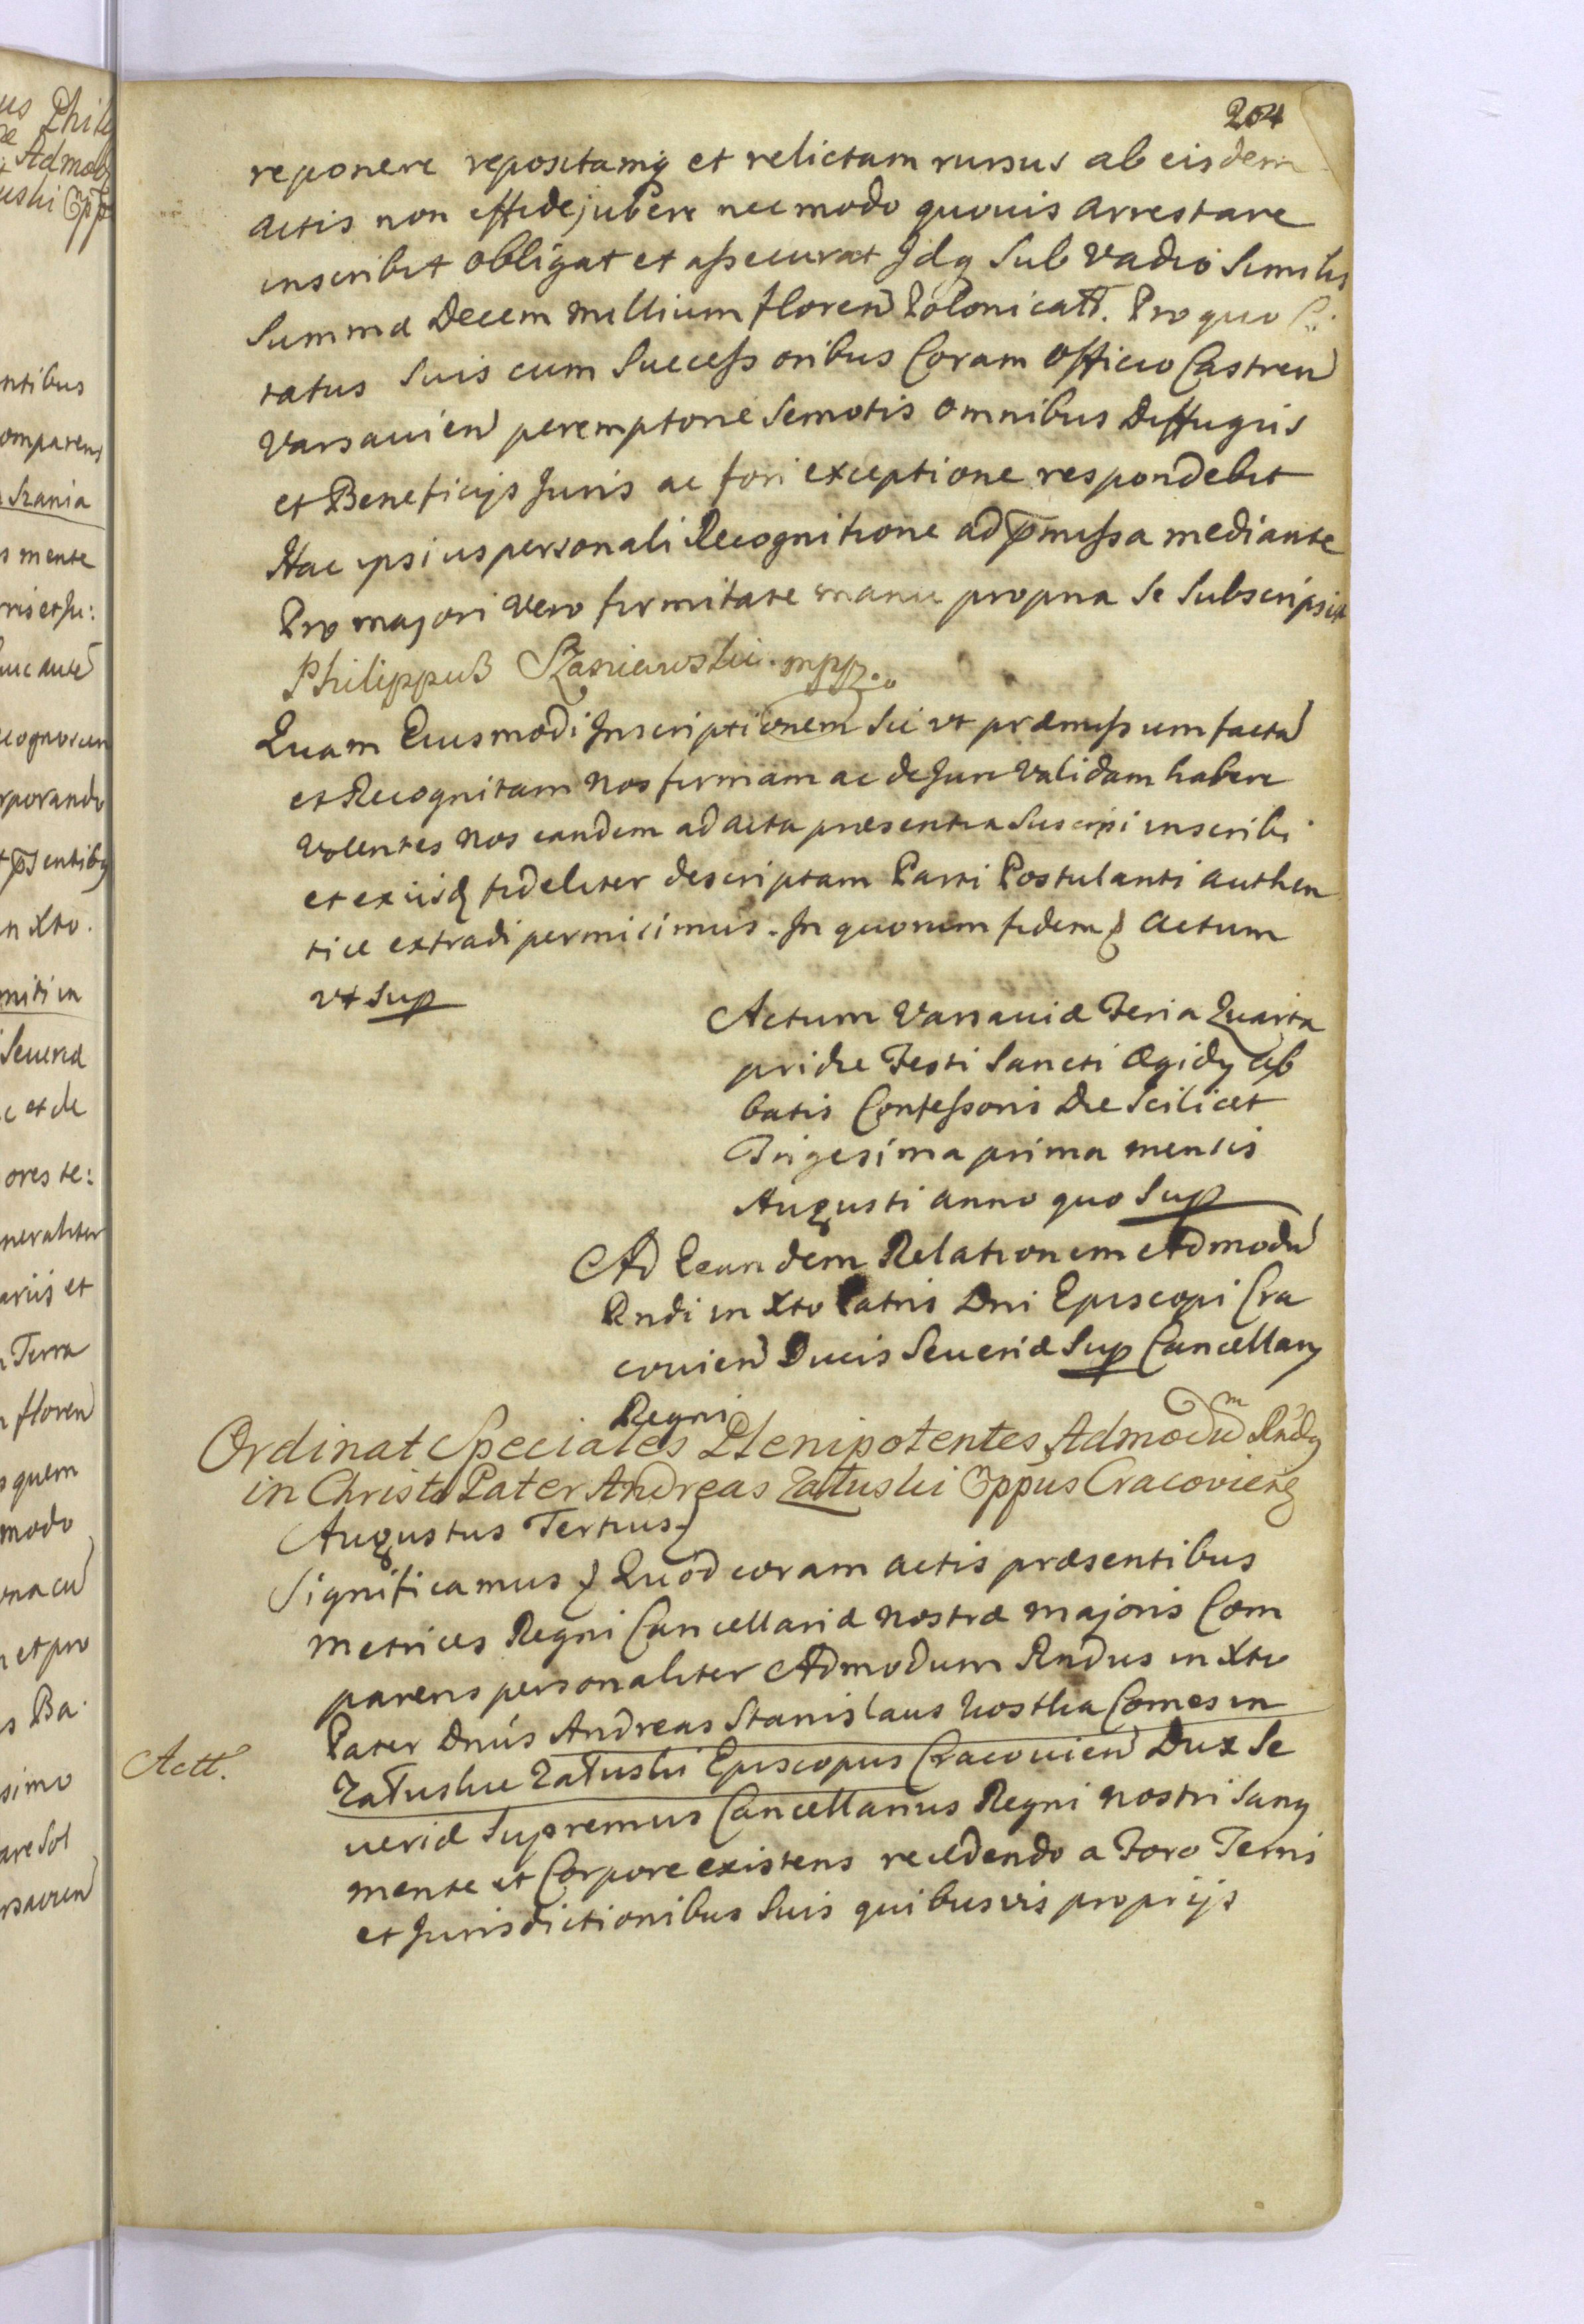 204
reponere repositamq et relictam rursus ab eisdem
actis non effidejubere nec modo quouis arrestare
inscribit obligat et assecurat Idq Sub vadio Similis
Summæ Decem millium floren Polonicatt. Pro quo Ci:
tatus Suis cum Successoribus Coram Officio Castren
Varsauien peremptorie Semotis omnibus Diffugiis
et Beneficijs Juris ac fori exceptione respondebit
Hac ipsius personali Recognitione ad pmissa mediante
Pro majori Vero firmitate manu propria Se Subscripsit
Philippus Szaniawski. mpp.
Quam Eiusmodi Inscriptionem Sic vt præmissum facta
et Recognitam Nos firmam ac de Jure Validam habere
Volentes Nos eandem ad acta præsentia Suscipi inscribi
et ex iisd fideliter descriptam Parti Postulanti authen
tice extradi permisimus. In quorum fidem Actum
vt Sup
Actum Varsauiæ Feria Quarta
pridie Festi Sancti Ægidy Ab
batis Confessoris Die Scilicet
Trigesima prima mensis
Augusti anno quo Sup
Ad Eandem Relationem Admodu
Rndi in Xto Patris Dni Episcopi Cra
couien Ducis Seueriæ Sup Cancellary
Regni
Ordinat Speciales Plenipotentes Admodum Rndq
in Christo Pater Andreas Załuski Eppus Cracovien
Augustus Tertius
Significamus Quod coram actis præsentibus
Metrices Regni Cancellariæ Nostræ Majoris Com
parens personaliter Admodum Rndus in Xto
Pater Dnus Andreas Stanislaus Kostka Comes in
Actt.
Załuskie Załuski Episcopus Cracouien Dux Se
ueriæ Supremus Cancellarius Regni Nostri Sanq
mente et Corpore existens recedendo a Foro Terris
et Jurisdictionibus Suis quibusvis proprijs